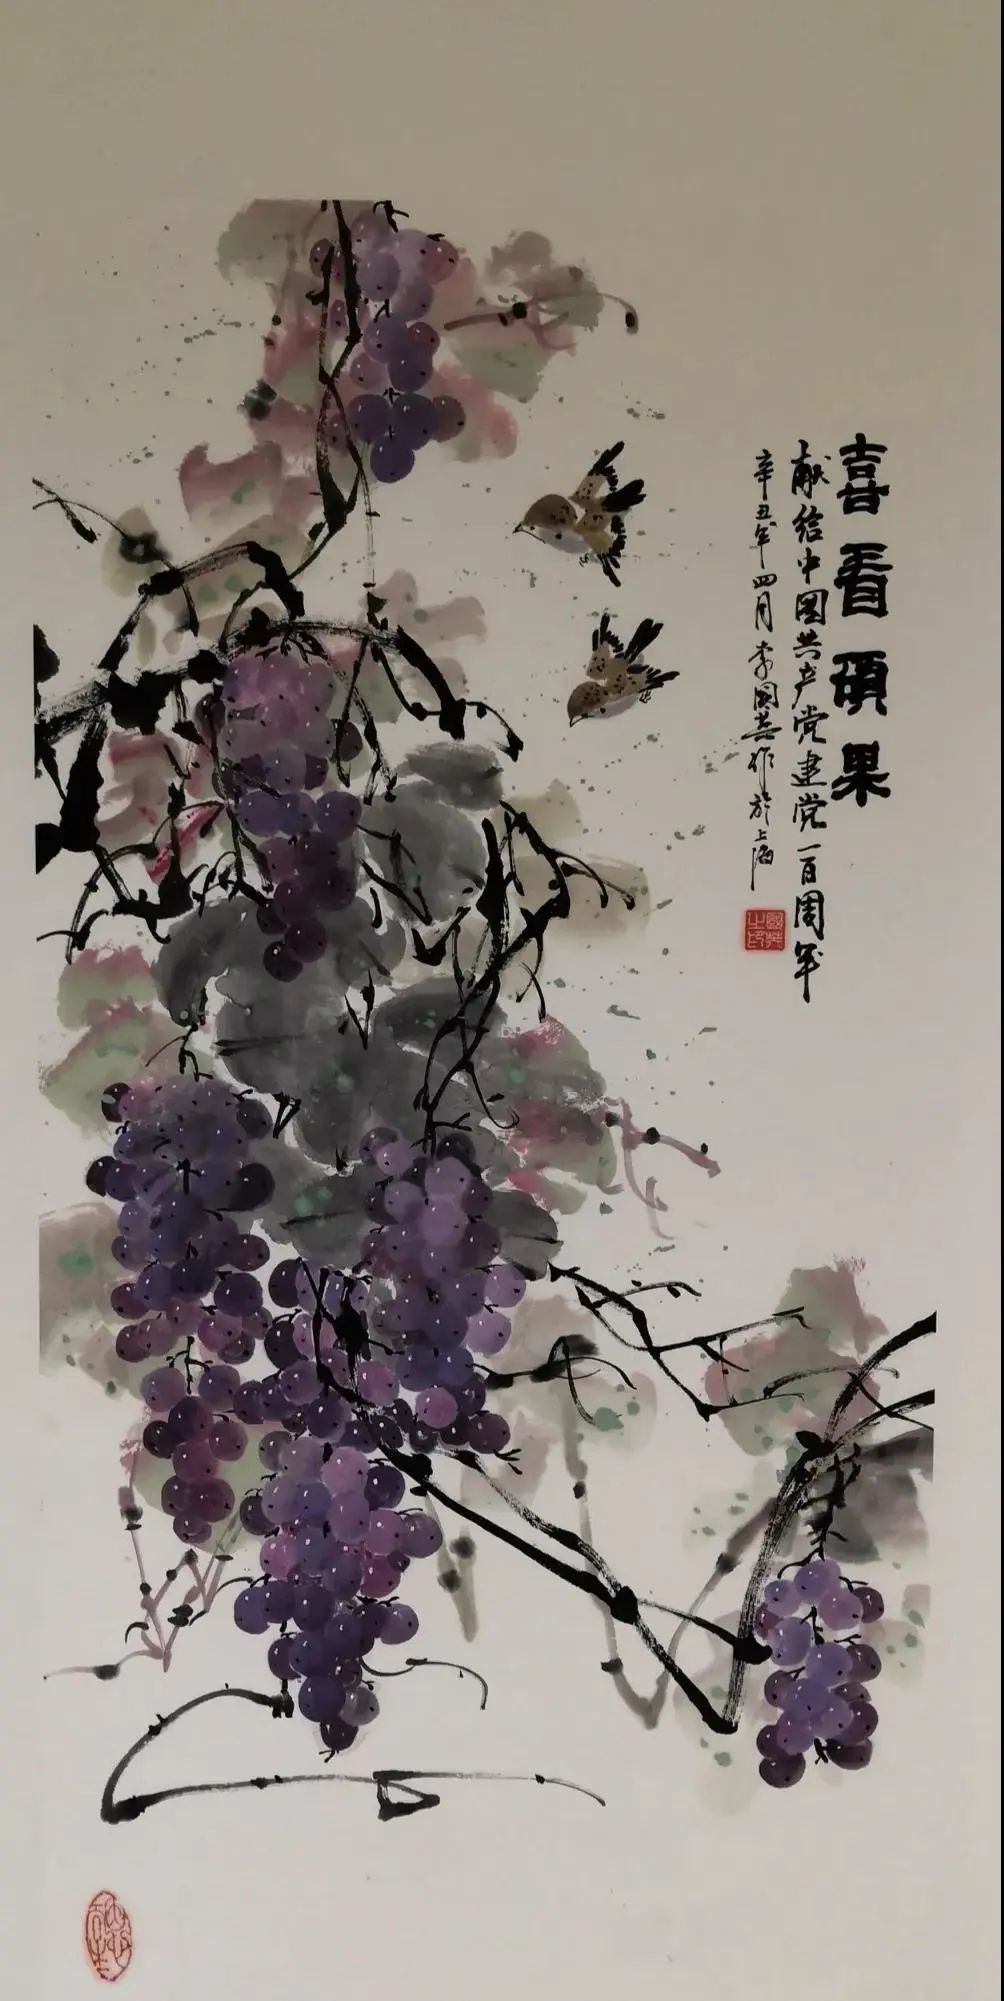 喜看硕果
献给中国共产党建党一百周年
辛丑年四月李国英作於上海
國英之印